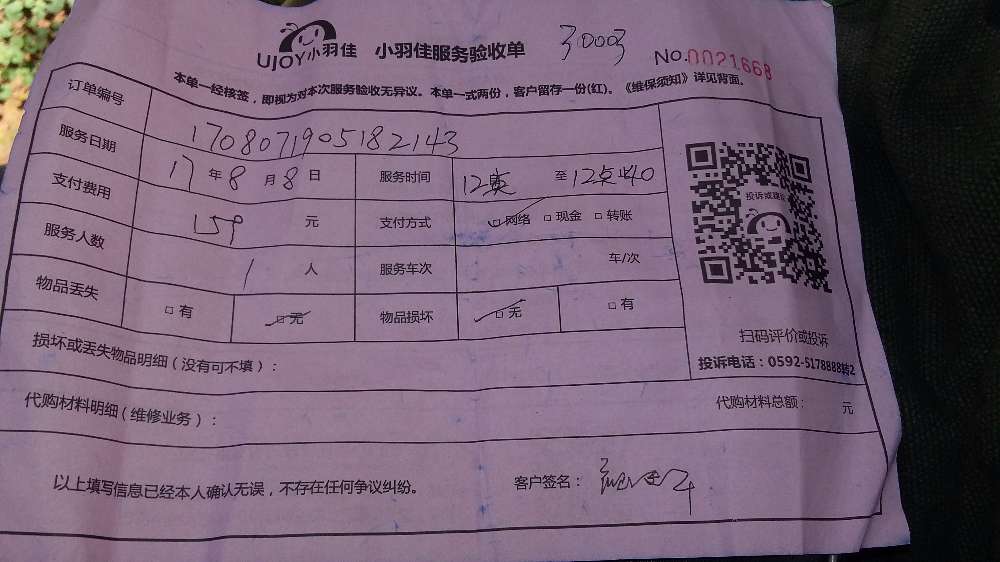 UJOY小羽佳 小羽佳服务验收单 30003 No.0021668
本单一经核签，即视为对本次服务验收无异议。本单一式两份，客户留存一份(红)。《维保须知》详见背面。
订单编号 170807190518２143
服务日期 17年8月8日 服务时间 12点 至 12点40
支付费用 159 元 支付方式 □网络 □现金 □转账
服务人数 1 人 服务车次 车/次
物品丢失 □有 □无 物品损坏 □无 □有
投诉或建议
扫码评价或投诉
投诉电话：0592-5178888转2
损坏或丢失物品明细（没有可不填）：
代购材料明细（维修业务）： 代购材料总额： 元
以上填写信息已经本人确认无误，不存在任何争议纠纷。 客户签名：